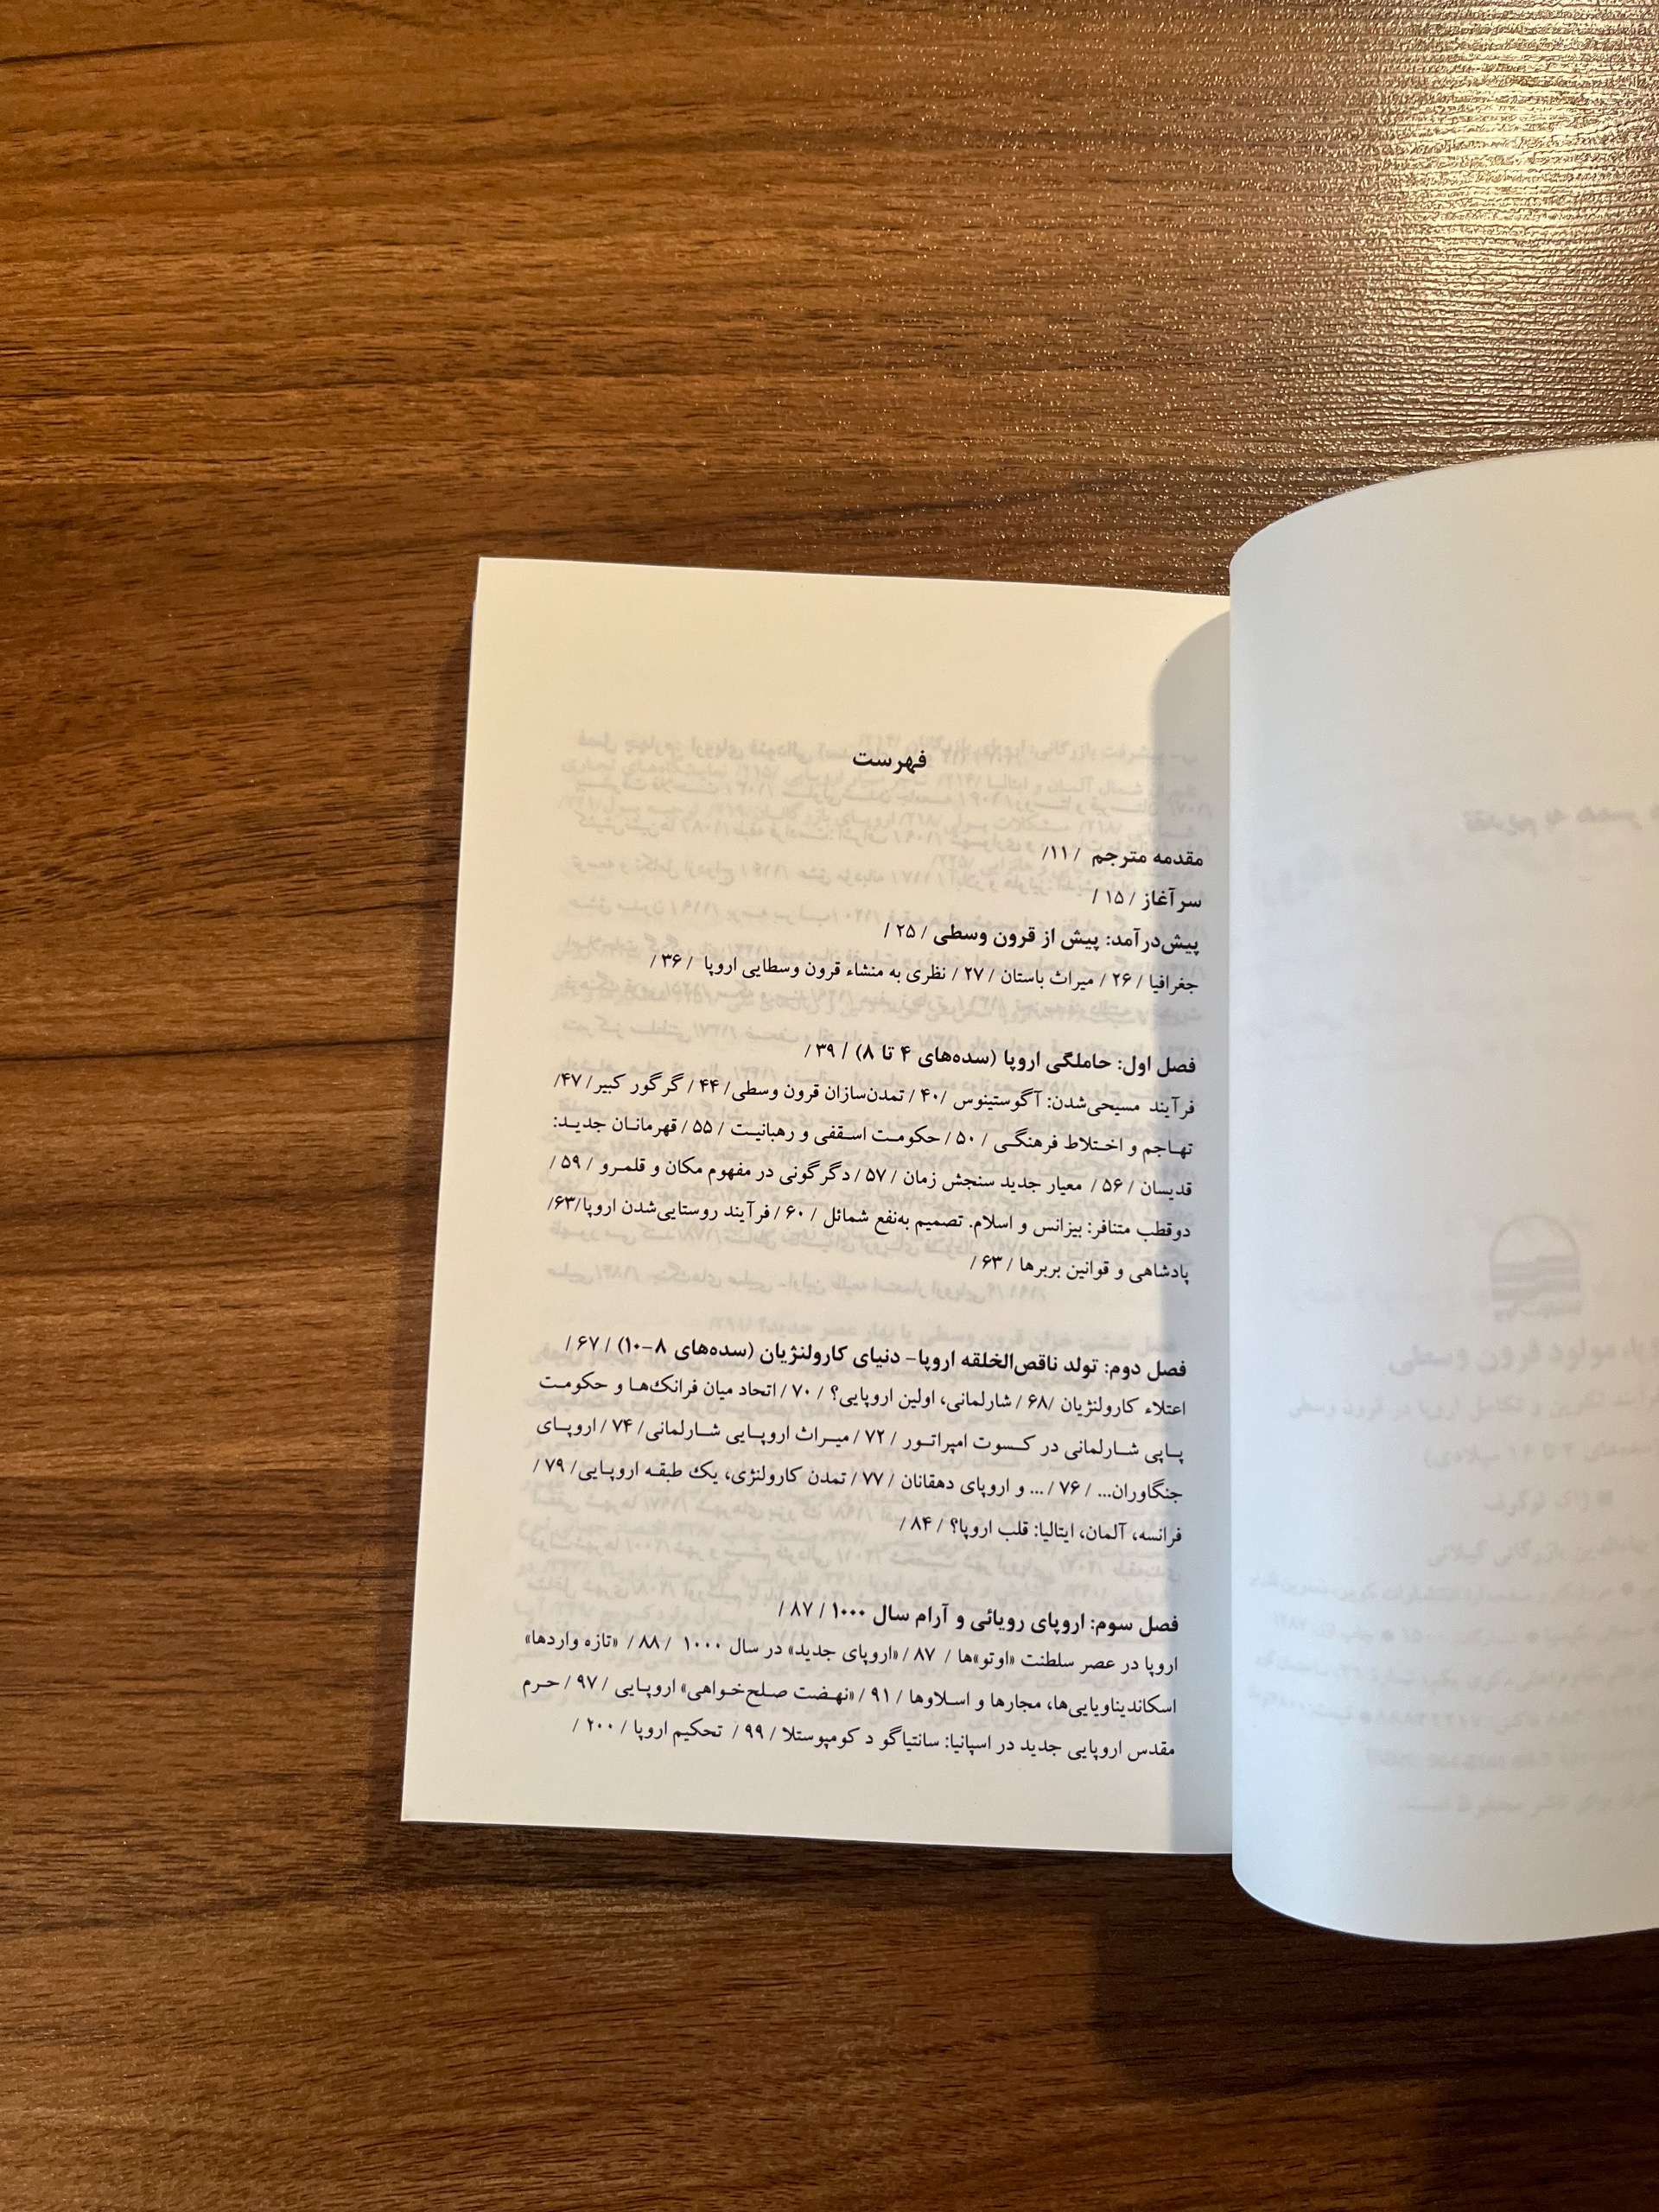 فهرست
مقدمه مترجم / ۱۱/
سرآغاز / ۱۵ /
پیش‌درآمد: پیش از قرون وسطی / ۲۵ /
جغرافیا / ۲۶ / میراث باستان / ۲۷ / نظری به منشاء قرون وسطایی اروپا / ۳۶ /
فصل اول: حاملگی اروپا (سده‌های ۴ تا ۸) / ۳۹ /
فرآیند مسیحی‌شدن: آگوستینوس /۴۰ / تمدن‌سازان قرون وسطی/ ۴۴ / گرگور کبیر/ ۴۷/
تهاجم و اختلاط فرهنگی / ۵۰ / حکومت اسقفی و رهبانیت / ۵۵ / قهرمانان جدید:
قدیسان / ۵۶ / معیار جدید سنجش زمان / ۵۷ / دگرگونی در مفهوم مکان و قلمرو / ۵۹ /
دوقطب متنافر: بیزانس و اسلام. تصمیم به‌نفع شمائل / ۶۰ / فرآیند روستایی‌شدن اروپا/۶۳/
پادشاهی و قوانین بربرها / ۶۳ /
فصل دوم: تولد ناقص‌الخلقه اروپا- دنیای کارولنژیان (سده‌های ۸-۱۰) / ۶۷ /
اعتلاء کارولنژیان /۶۸ / شارلمانی، اولین اروپایی؟ / ۷۰ / اتحاد میان فرانک‌ها و حکومت
پاپی شارلمانی در کسوت امپراتور / ۷۲ / میراث اروپایی شارلمانی/ ۷۴ / اروپای
جنگاوران... / ۷۶ / ... و اروپای دهقانان / ۷۷ / تمدن کارولنژی، یک طبقه اروپایی/ ۷۹ /
فرانسه، آلمان، ایتالیا: قلب اروپا؟ / ۸۴ /
فصل سوم: اروپای رویائی و آرام سال ۱۰۰۰ / ۸۷ /
اروپا در عصر سلطنت «اوتو»ها / ۸۷ / «اروپای جدید» در سال ۱۰۰۰ / ۸۸ / «تازه واردها»
اسکاندیناویایی‌ها، مجارها و اسلاوها / ۹۱ / «نهضت صلح‌خواهی» اروپایی / ۹۷ / حرم
مقدس اروپایی جدید در اسپانیا: سانتیاگو د کومپوستلا / ۹۹ / تحکیم اروپا / ۲۰۰ /